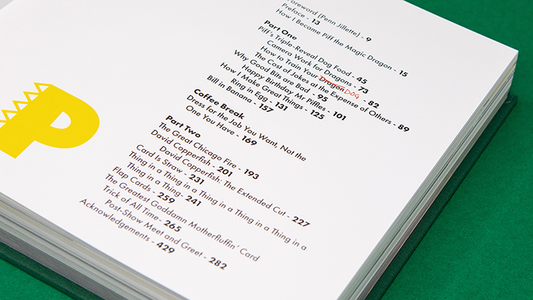 Foreword (Penn Jillette) - 9
Preface - 13
How I Became Piff the Magic Dragon - 15
Part One
Piff's Triple-Reveal Dog Food - 45
Camera Work for Dragons - 73
How to Train Your Dragon DOG - 82
The Cost of Jokes at the Expense of Others - 89
Why Good Bits are Bad - 95
Happy Birthday Mr Piffles - 101
How I Make Great Things - 125
Ring in Egg - 131
Bill in Banana - 157
Coffee Break
Dress for the Job You Want, Not the
One You Have - 169
Part Two
The Great Chicago Fire - 193
David Copperfish - 201
David Copperfish: The Extended Cut - 227
Card Is Straw - 231
Thing in a Thing in a Thing in a Thing in a Thing in a
Thing in a Thing - 241
Flap Cards - 259
The Greatest Goddamn Motherfluffin' Card
Trick of All Time - 265
Post-Show Meet and Greet - 282
Acknowledgements - 429
P